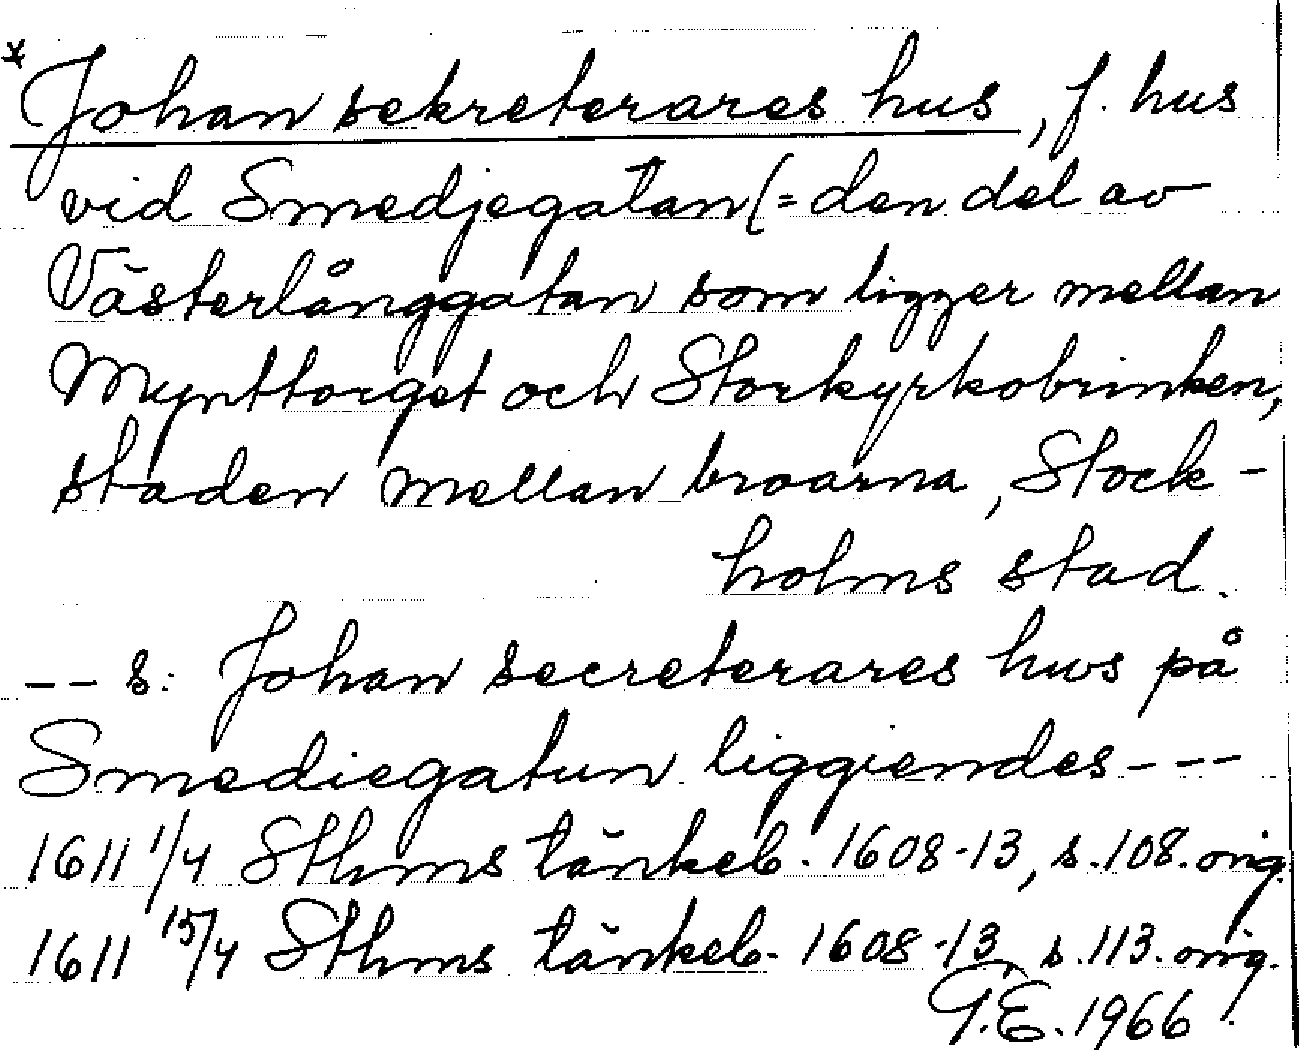 * Johan sekreterares hus, f. hus
vid Smedjegatan (= den del av
Västerlånggatan som ligger mellan
Mynttorget och Storkyrkobrinken,
staden mellan broarna, Stock-
holms stad.
-- s: Johan secreterares hws på
Smediegatun liggiendes ---
1611 1/4 Sthms tänkeb. 1608-13, s. 108. orig.
1611 15/4 Sthms tänkeb. 1608-13, s. 113. orig.
G.E. 1966.